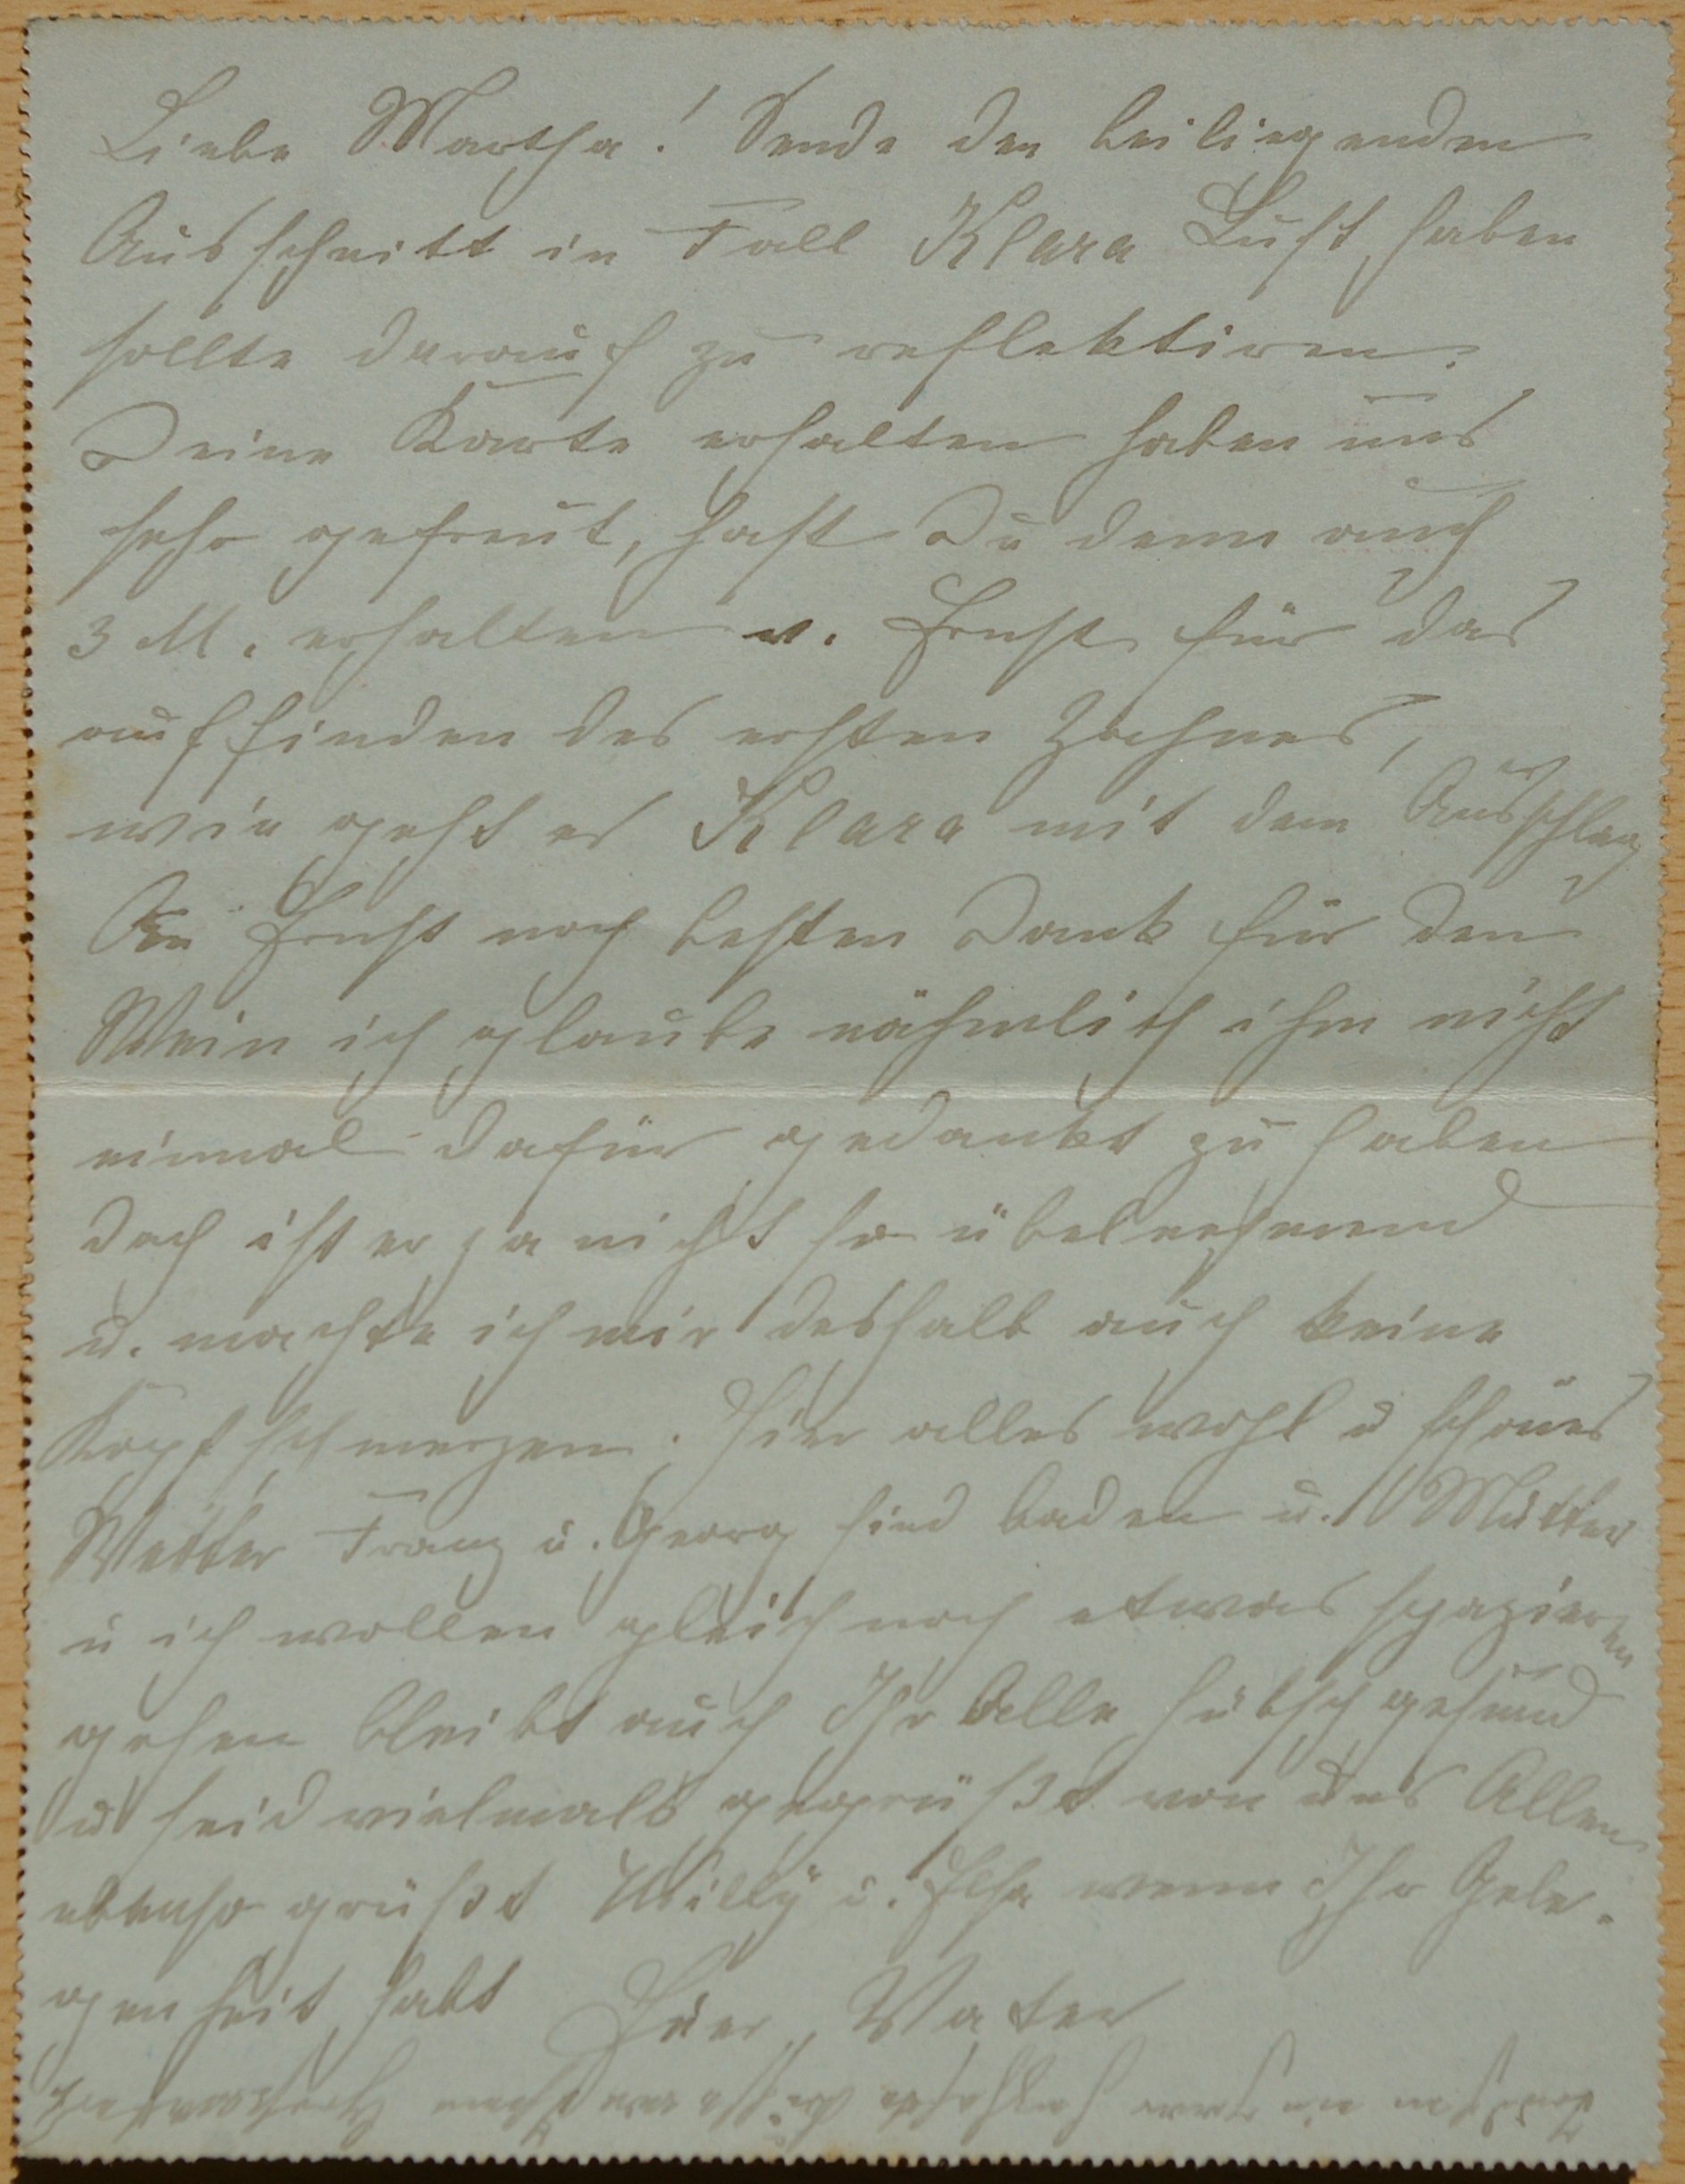 Liebe Martha! Sende den beiliegenden
Ausschnitt in Fall Klara Lust haben
sollte darauf zu reflektiren.
Deine Karte erhalten haben uns
sehr gefreut, hast Du denn auch
3 M. erhalten v. Ernst für das
auffinden des ersten Zahnes,
wie geht es Klara mit dem Ausschlag
An Ernst noch besten Dank für den
Wein ich glaube nähmlich ihm nicht
einmal dafür gedankt zu haben
doch ist er ja nicht so übelnehmend
u. machte ich mir deshalb auch keine
Kopfschmerzen. Hier alles wohl u schönes
Wetter Franz u. Georg sind baden u. Mutter
u ich wollen gleich noch etwas spazieren
gehen bleibt auch Ihr Alle hübsch gesund
u seid vielmals gegrüßt von uns Allen
ebenso grüßt Willÿ u. Else wenn Ihr Gele-
genheit habt Euer Vater